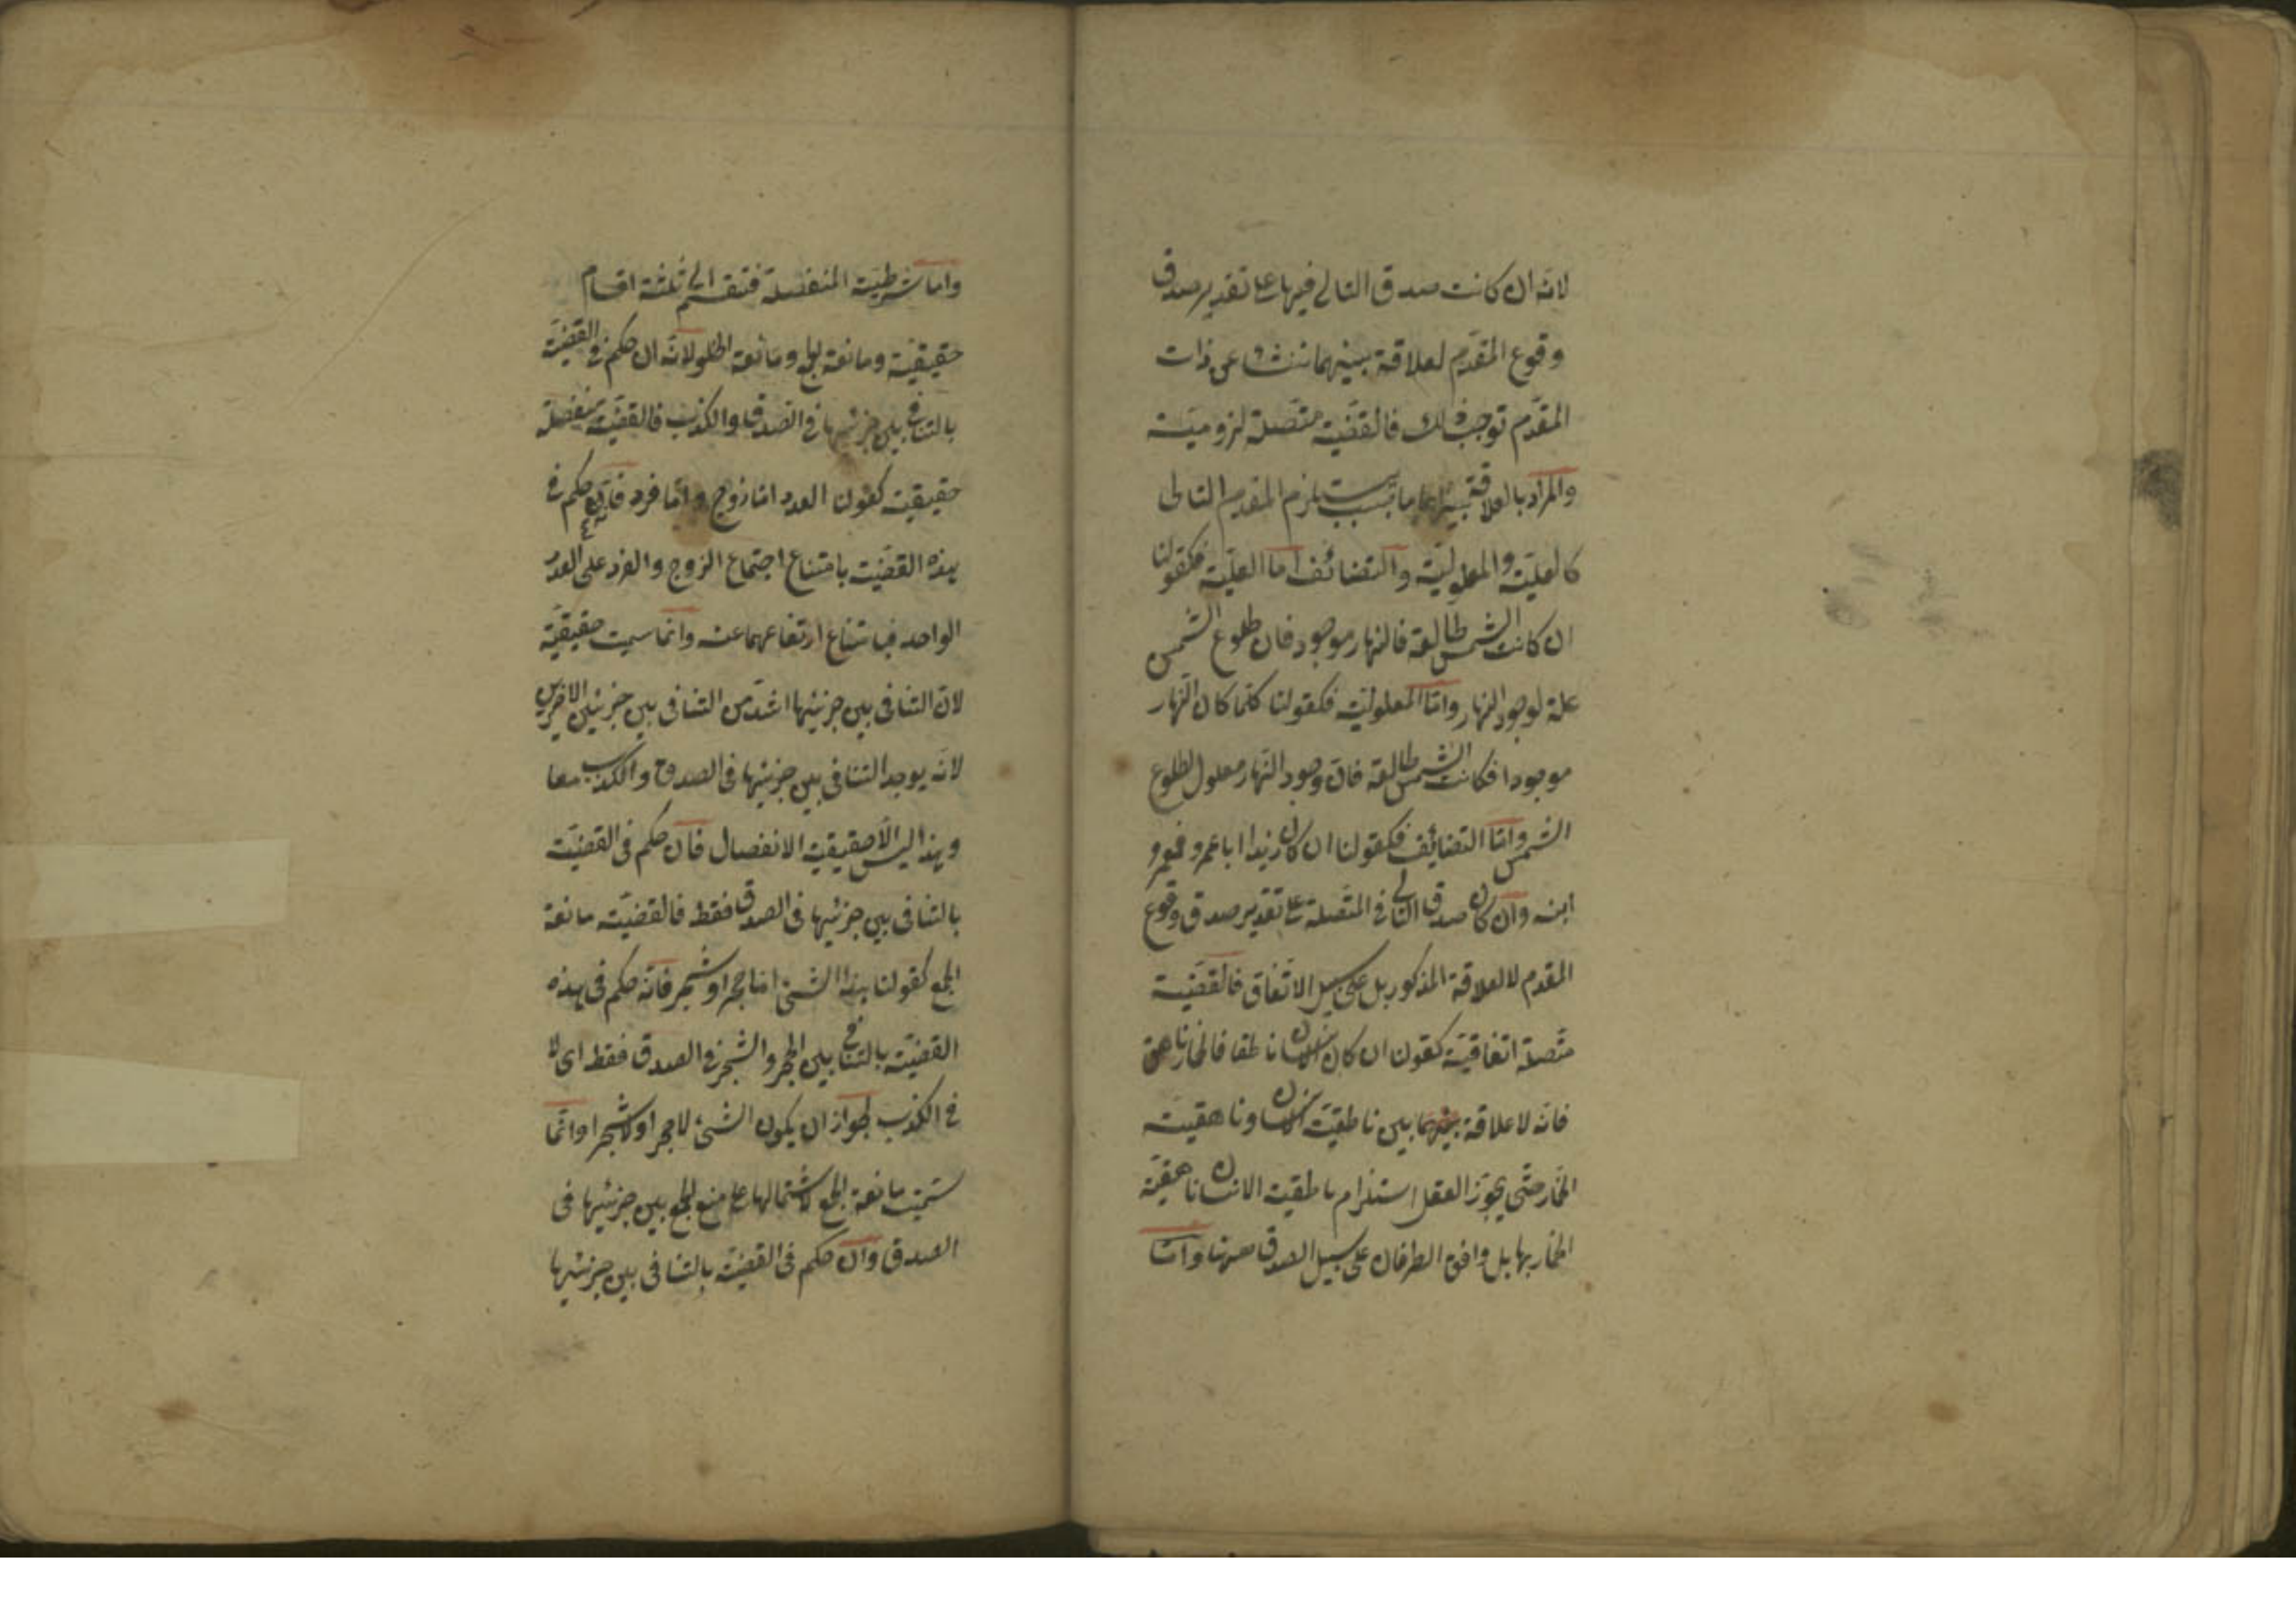 لانه ان كانت صدق التالي فيها على تقدير صدق
وقوع المقدّم لعلاقة بينهما تنشؤ عن ذات
المقدّم توجب ذلك فالقضية متصلة لزومية
والمراد بالعلاقة بينهما ما بسببه يستلزم المقدم التالى
كالعلية والمعلولية والتضائف اما العلية فكقولنا
ان كانت الشمس طالعة فالنهار موجود فان طلوع الشمس
علة لوجود النهار واما المعلولية فكقولنا كلما كان النهار
موجودا فكانت الشمس طالعة فان وجود النهار معلول لطلوع
الشمس واما التضايف فكقولنا ان كان زيدا ابا عمرو فعمرو
ابنه وان كان صدق التالى فى المتصلة على تقدير صدق وقوع
المقدم لا لعلاقة المذكور بل على سبيل الاتفاق فالقضية
متصلة اتفاقية كقولن ان كان الانسان ناطقا فالحمار ناهق
فانه لا علاقة بين ناطقية الانسان وناهقية
الحمار حتى يجوز العقل استلزام ناطقية الانسان ناهقية
الحمار بها بل وافق الطرفان على سبيل الصدق ههنا واما
واما شرطية المنفصلة فتنقسم الى ثلثة اقسام
حقيقية ومانعة الجمع ومانعة الخلو لانه ان حكم فى القضية
بالتنافى بين جزئيها فى الصدق والكذب فالقضية منفصلة
حقيقية كقولنا العدد اما زوج واما فرد فانه حكم فى
هذه القضية بامتناع اجتماع الزوج والفرد على العدد
الواحد فبامتناع ارتفاعهما عنه وانما سميت حقيقية
لان التنافى بين جزئيها اشد من التنافى بين جزئيى الاخريين
لانه يوجد التنافى بين جزئيها فى الصدق والكذب معا
وهذا ليس الا حقيقية الانفصال فان حكم فى القضية
بالتنافى بين جزئيها فى الصدق فقط فالقضية مانعة
الجمع كقولنا هذا الشئ اما حجر او شجر فانه حكم فى هذه
القضية بالتنافى بين الحجر والشجر فى الصدق فقط اى لا
فى الكذب لجواز ان يكون الشئ لا حجرا ولا شجرا وانما
سميت مانعة الجمع لاشتمالها على منع الجمع بين جزئيها فى
الصدق وان حكم فى القضية بالتنافى بين جزئيها